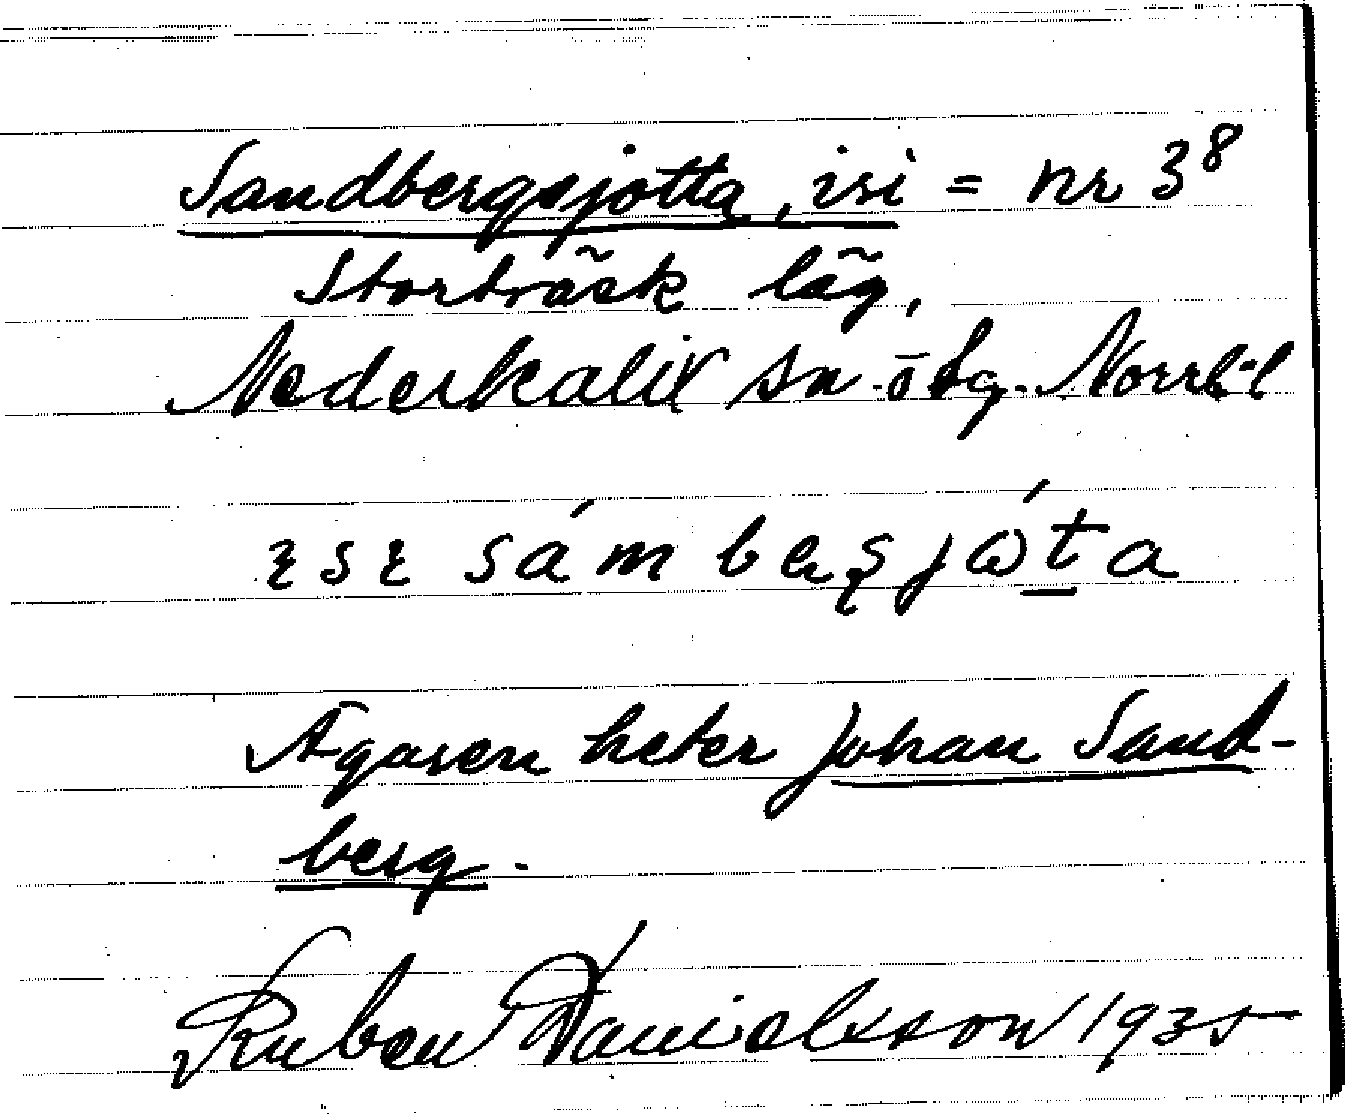 Sandbergsjotta, isi = nr 3⁸
Storträsk läg,
Nederkalix sn ö bg. Norrb-l
ɪsɪ sám be jώta
Ägaren heter Johan Sand-
berg.
Ruben Danielsson 1935